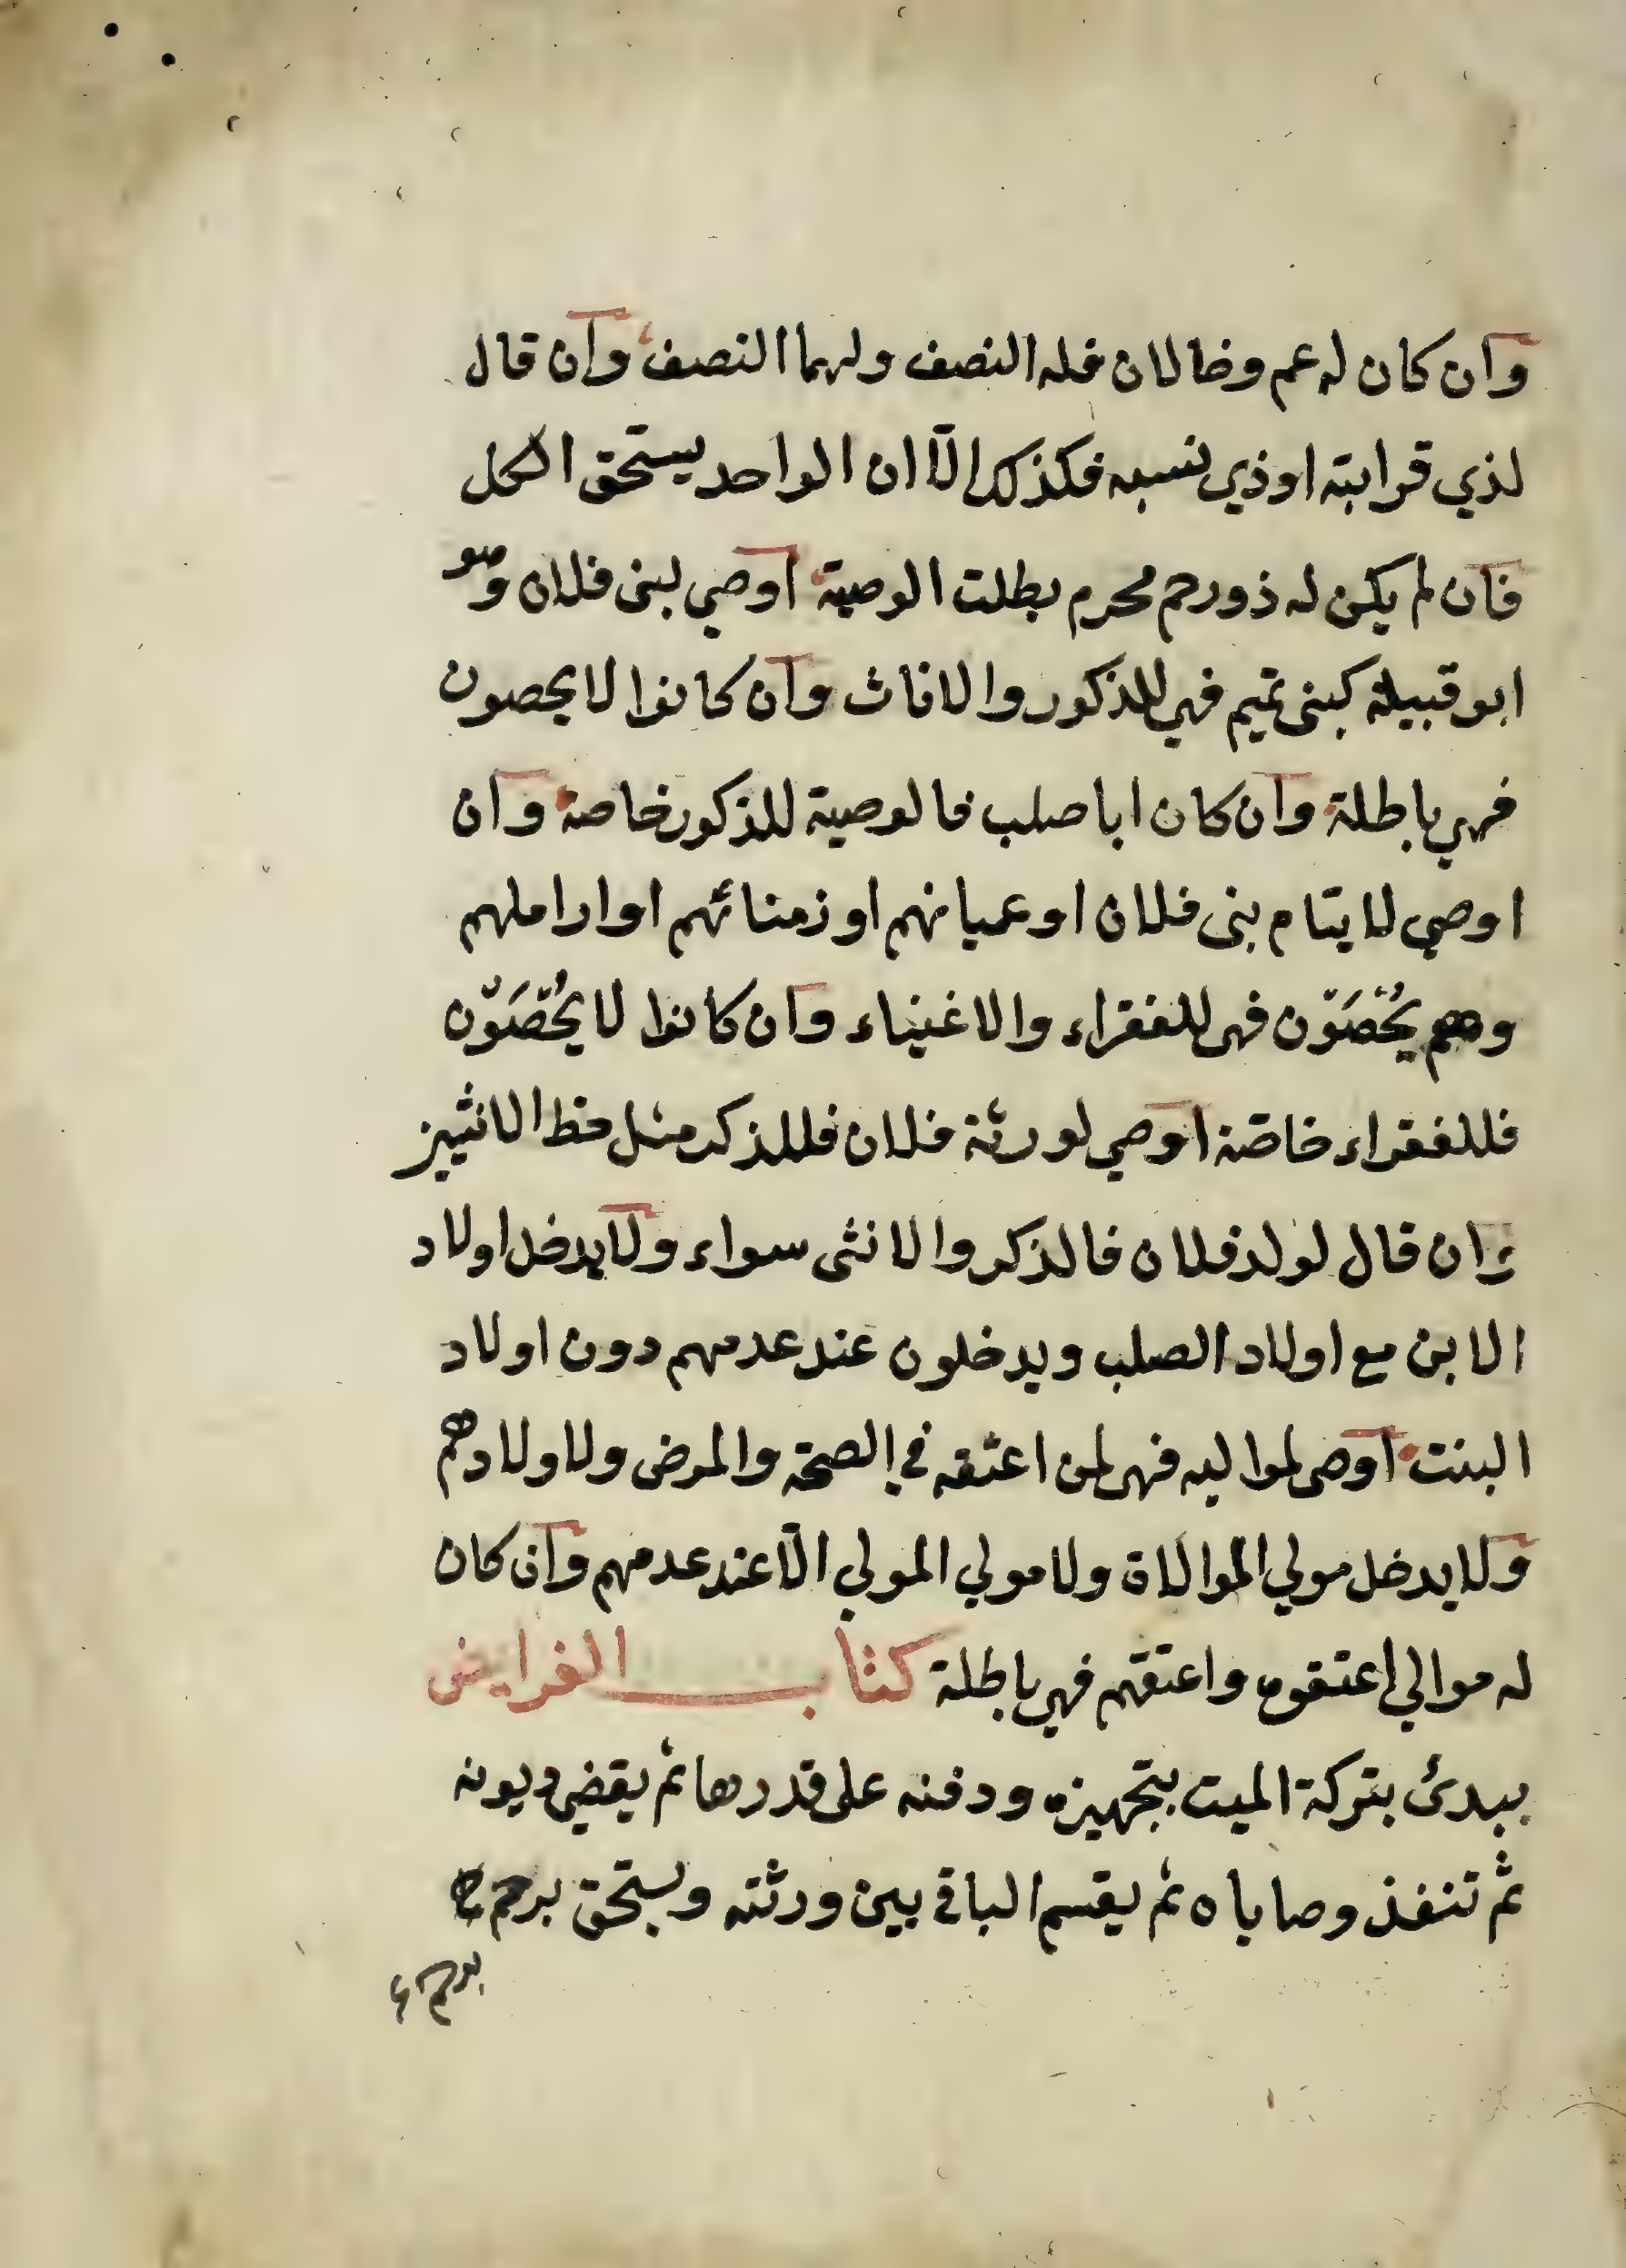 وان كان له عم وخالان فله النصف ولهما النصف وان قال
لذي قرابته او ذي نسبه فكذلك الّا ان الواحد يستحق الكل
فان لم يكن له ذو رحم محرم بطلت الوصية اوصي لبنى فلان وهو
ابو قبيلة كبنى تميم فهي للذكور والاناث وان كانوا لا يحصون
فهي باطلة وان كان ابا صلب فالوصية للذكور خاصة وان
اوصي لايتام بنى فلان او عميانهم او زمنائهم او اراملهم
وهم يُحْصَوّن فهى للفقراء والاغنياء وان كانوا لا يُحْصَوّن
فللفقراء خاصّة اوصي لورثة فلان فللذكر مثل حظ الانثيين
وان قال لولد فلان فالذكر والانثى سواء ولا يدخل اولاد
الابن مع اولاد الصلب ويدخلون عند عدمهم دون اولاد
البنت اوصى لمواليه فهى لمن اعتقه في الصحة والمرض ولاولادهم
ولا يدخل مولي الموالاة ولا مولي المولي الّا عند عدمهم وان كان
له موالي اعتقوه واعتقهم فهي باطلة كتاب الفرايض
يبدئ بتركة الميت بتجهيزه ودفنه على قدرها ثم يقضي ديونه
ثم تنفذ وصاياه ثم يقسم الباقي بين ورثته ويستحق برحم
برحم